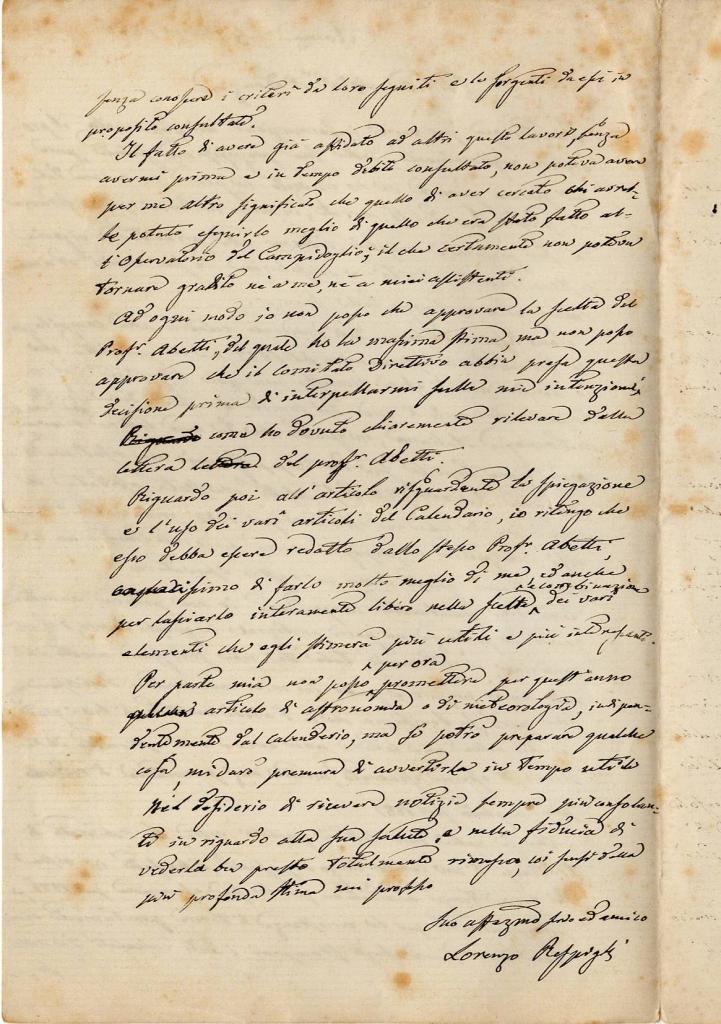 senza conoscere i criteri da loro seguiti e le sorgenti da essi in
proposito consultate.
Il fatto di avere già affidato ad altri questo lavoro, senza
avermi prima e in tempo debito consultato, non poteva avere
per me altro significato che quello di aver cercato chi avreb-
be potuto eseguirlo meglio di quello che era stato fatto al-
l'Osservatorio del Campidoglio; il che certamente non poteva
tornare gradito nè a me, nè a miei assistenti.
Ad ogni modo io non posso che approvare la scelta del
Profr. Abetti, del quale ho la massima stima, ma non posso
approvare che il comitato Direttivo abbia presa questa
decisione prima di interpellarmi sulle mie intenzioni,
come ho dovuto chiaramente rilevare dalla
lettera del profr. Abetti.
Riguardo poi all'articolo risguardante la spiegazione
e l'uso dei vari articoli del Calendario, io ritengo che
esso debba essere redatto dallo stesso Profr. Abetti,
capacissimo di farlo molto meglio di me, ed anche
per lasciarlo interamente libero nella scelta e combinazione dei vari
elementi che egli stimerà più utili e più interessanti.
Per parte mia non posso per ora promettere per quest'anno
articolo di astronomia o di meteorologia, indipen-
dentemente dal calendario, ma se potrò preparare qualche
cosa, mi darò premura di avvertirla in tempo utile
Nel desiderio di ricevere notizie sempre più consolan-
ti in riguardo alla sua salute, e nella fiducia di
vederla ben presto totalmente rimessa, coi sensi della
più profonda stima mi professo
Suo affezmo servo ed amico
Lorenzo Respighi